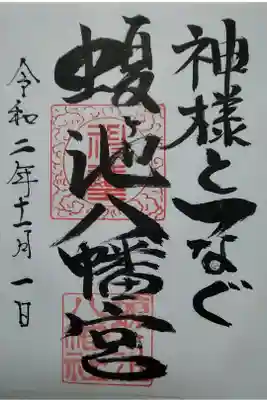 神様とつなぐ
蝮ヶ池八幡宮
令和二年十一月一日